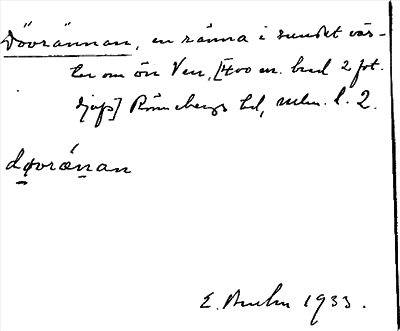 Dövrännan, en ränna i sundet väs-
ter om ön Ven, [400 m. bred 2 fot.
djup] Rönnebergs hd, mlm. l. 2.
døvrǽnan
E. 1933.